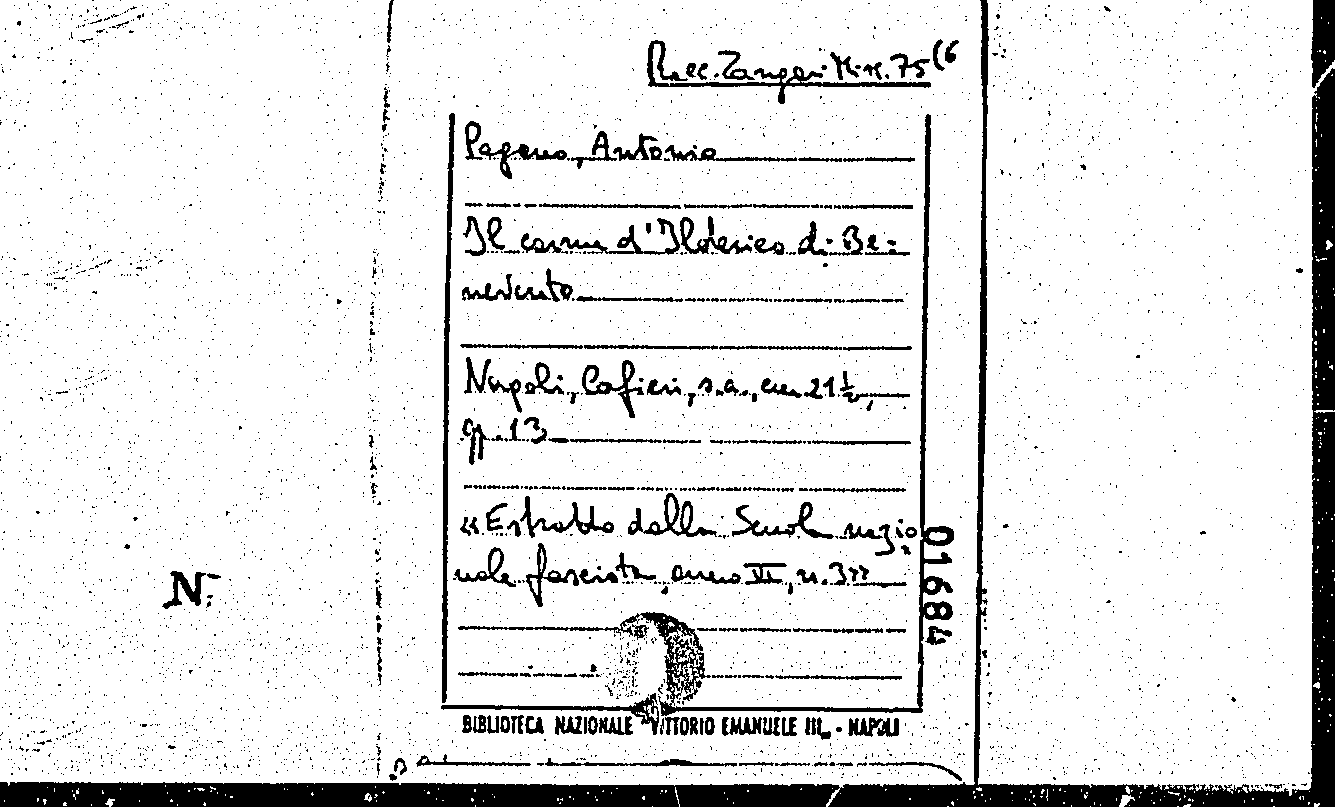 Racc. Zangari Misc. 75(6
Pagano, Antonio
Il carme d'Ilderico di Be-
nevento
Napoli, Cafieri, s.a., cm. 21½,
pp. 13
«Estratto dalla Scuola nazio
nale fascista, anno VI, n. 3»
01684
N.
BIBLIOTECA NAZIONALE "VITTORIO EMANUELE III„ - NAPOLI